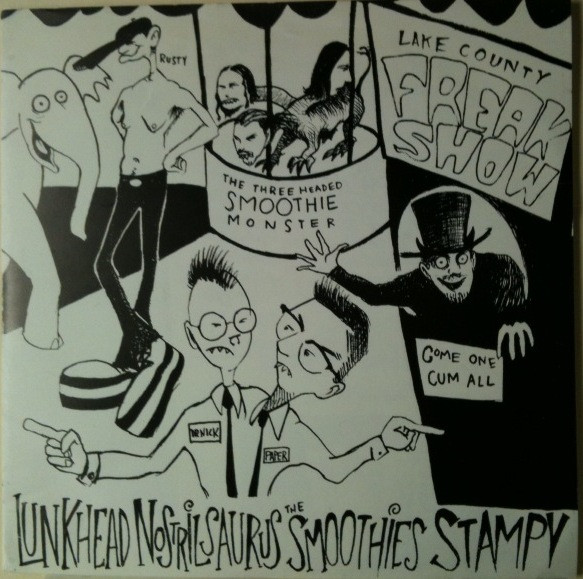 RUSTY
LAKE COUNTY
FREAK
SHOW
THE THREE HEADED
SMOOTHIE
MONSTER
COME ONE
CUM ALL
PAPER
LUNKHEAD NOSTRILSAURUS THE SMOOTHIES STAMPY